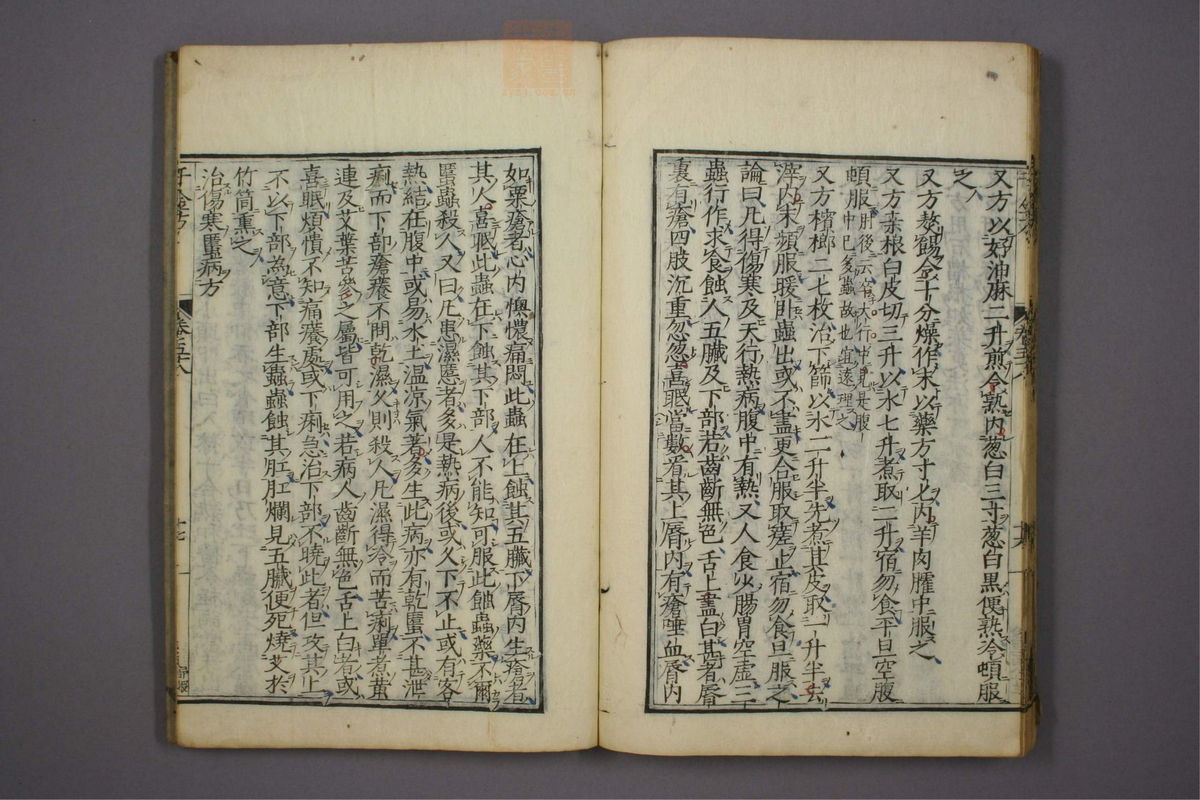 又方以好油麻二升煎令熟内葱白三寸葱白黒便熟冷頓服
之
又方熬錫令十分燥作末以藥方寸匕内羊肉臛中服之
又方桒根白皮切三升以水七升煮取二升宿勿食平旦空腹
頓服
肘後云
中已多蟲故也宜速理之
又方檳榔二七枚治下篩以水二升半先煮其皮取一升半去
滓内末頻服暖卧蟲出或不盡更合服取瘥止宿勿食旦服之
論曰凡得傷寒及天行熱病腹中有熱又人食少腸胃空虚三
蟲行作求食蝕人五臟及下部若齒齗無色舌上盡白甚者脣
裏有瘡四肢沉重忽忽喜眠當數看其上脣内有瘡唾血脣内
如粟瘡者心内懊憹痛悶此蟲在上蝕其五臟下脣内生瘡者
其人喜眠此蟲在下蝕其下部人不能知可服此蝕蟲藥不爾
䘌蟲殺人又曰凡患濕䘌者多是熱病後或久下不止或有客
熱結在腹中或易水土温凉氣著多生此病亦有乾䘌不甚泄
痢而下部瘡癢不問乾濕久則殺人凡濕得冷而苦痢單煮黄
連及艾葉苦參之屬皆可用之若病人齒齗無色舌上白者或
喜眠煩憒不知痛癢處或下痢急治下部不曉此者但攻其上
不以下部為意下部生蟲蟲蝕其肛肛爛見五臟便死燒艾於
竹筒熏之
治傷寒䘌病方
千金方
卷五十八
十七